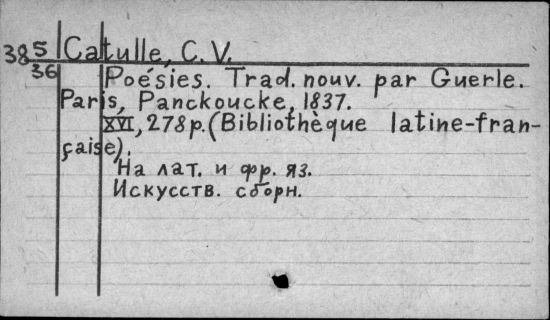 38 5/36 Catulle, C. V.
Poésies. Trad. nouv. par Guerle.
Paris, Panckoucke, 1837.
XVI, 278 p. (Bibliothèque latine-fran-
çaise).
На лат. и фр. яз.
Искусств. сборн.